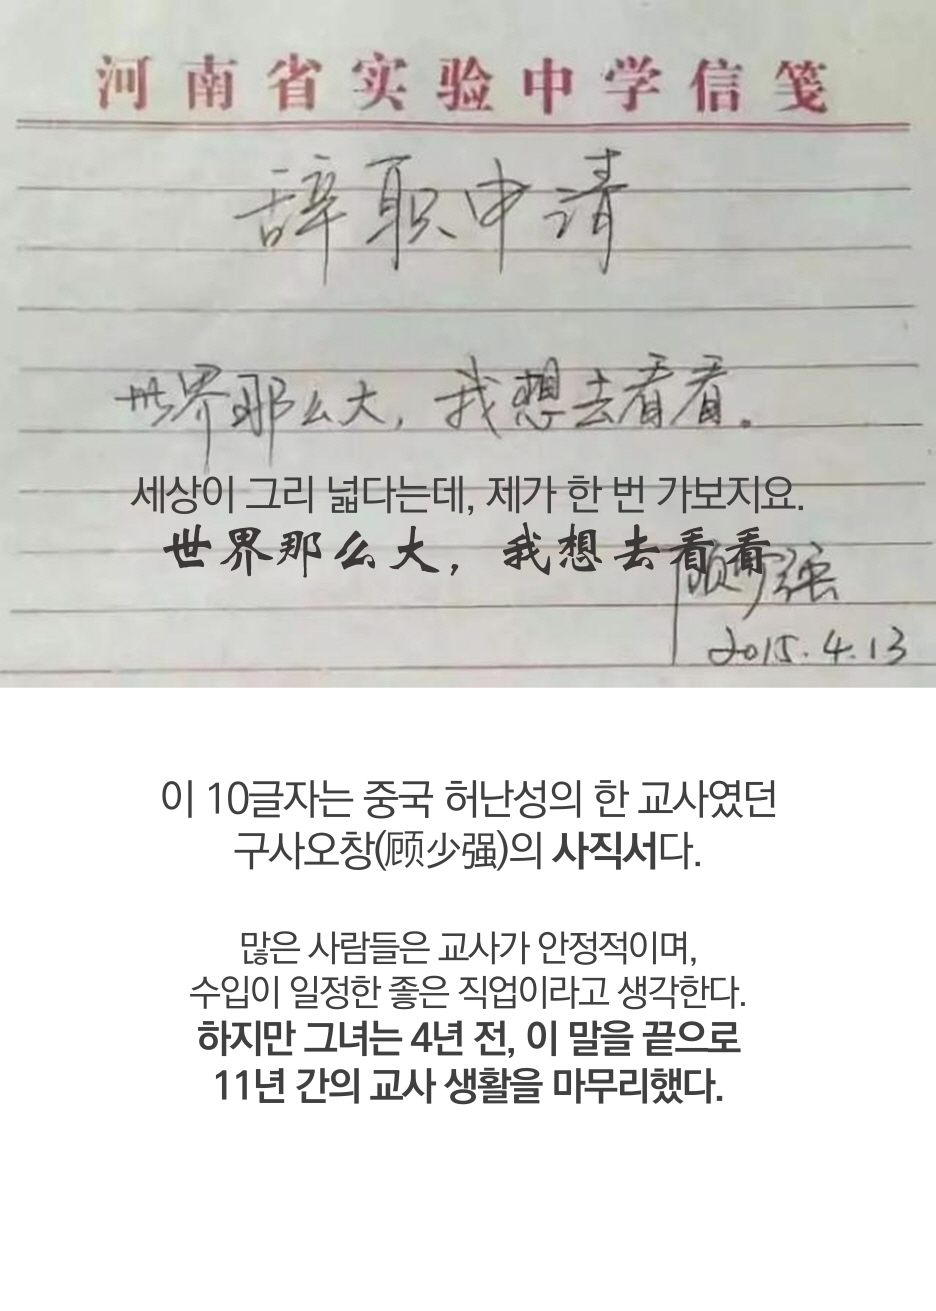 河南省实验中学信笺
辞职申请
世界那么大，我想去看看。
세상이 그리 넓다는데, 제가 한 번 가보지요.
世界那么大，我想去看看
顾少强
2015.4.13
이 10글자는 중국 허난성의 한 교사였던
구사오창(顾少强)의 사직서다.
많은 사람들은 교사가 안정적이며,
수입이 일정한 좋은 직업이라고 생각한다.
하지만 그녀는 4년 전, 이 말을 끝으로
11년 간의 교사 생활을 마무리했다.